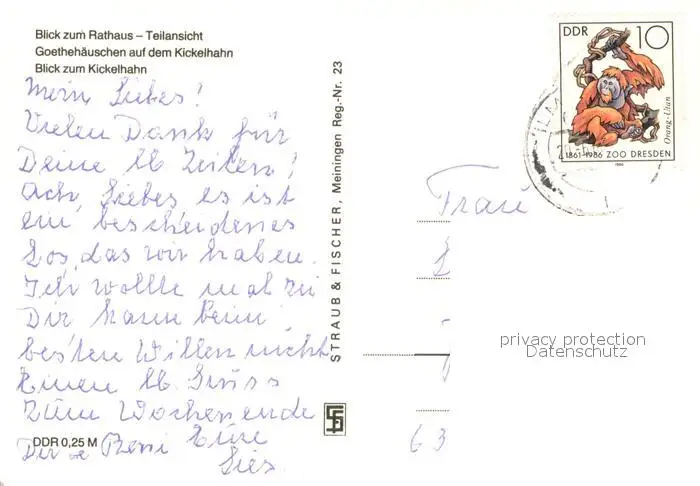 Blick zum Rathaus – Teilansicht
Goethehäuschen auf dem Kickelhahn
Blick zum Kickelhahn
Mein Liebes!
Vielen Dank für
Deine lb Zeilen!
Ach, Liebes es ist
ein bescheidenes
Los, das wir haben.
Ich wollte mal zu
Dir kann beim
besten Willen nicht
Einen lb Gruss
zum Wochenende
Dir Eure
DDR 0,25 M
STRAUB & FISCHER, Meiningen Reg.-Nr. 23
DDR 10
Orang-Utan
1861-1986 ZOO DRESDEN
1986
ILM
Frau
63
privacy protection
Datenschutz